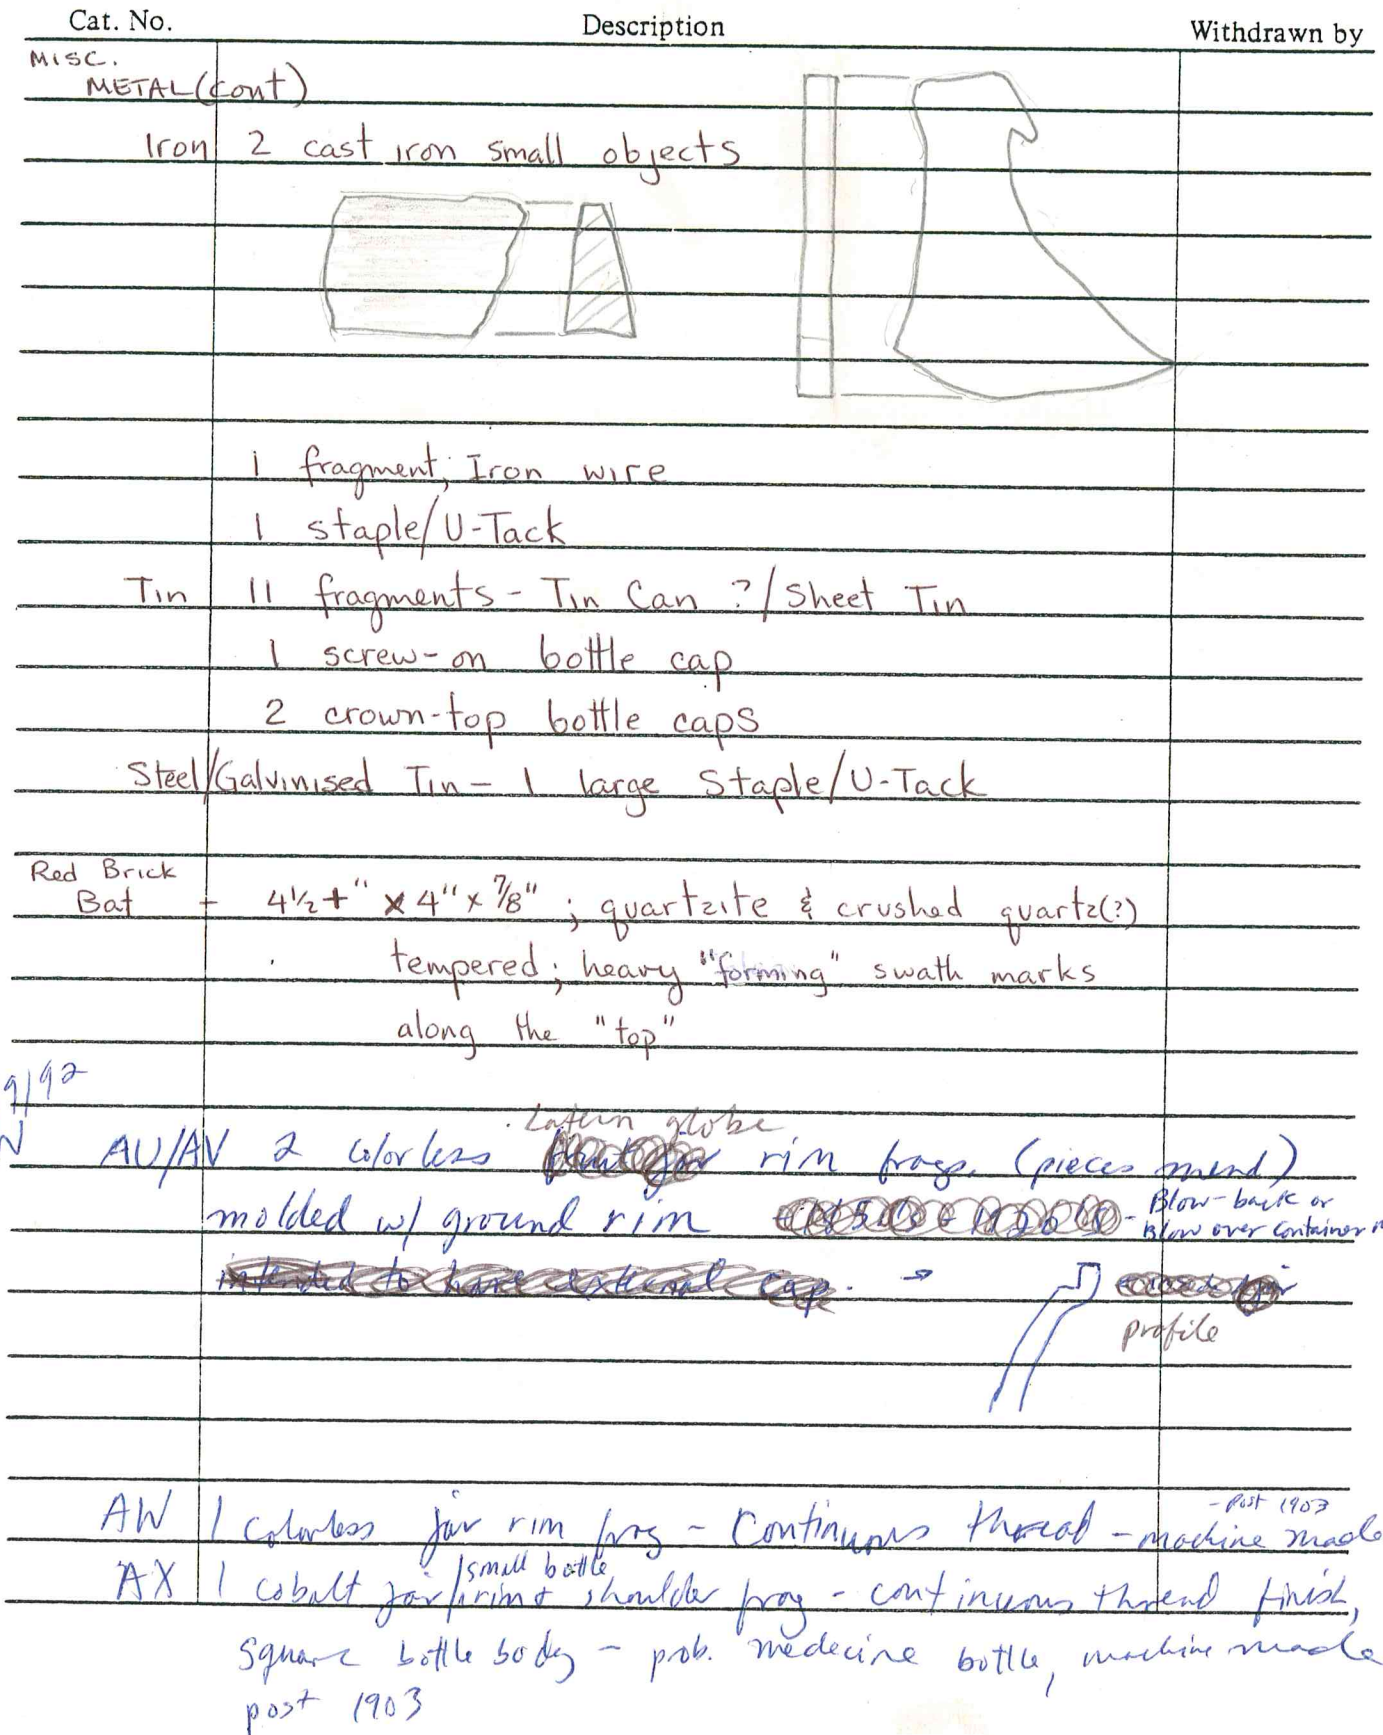 Cat. No. Description Withdrawn by
MISC.
METAL (cont)
Iron 2 cast iron small objects
1 fragment; Iron wire
1 staple/U-Tack
Tin 11 fragments - Tin Can ?/Sheet Tin
1 screw-on bottle cap
2 crown-top bottle caps
Steel/Galvinised Tin - 1 large Staple/U-Tack
Red Brick
Bat - 4½+" x 4" x ⅞" ; quartzite & crushed quartz(?)
tempered; heavy "forming" swath marks
along the "top"
9/92
Latern globe
AU/AV 2 colorless rim frags. (pieces mend)
molded w/ ground rim - Blow-back or
Blow over container
intended to have external cap. →
profile
- Post 1903
AW 1 colorless jar rim frag - Continuous thread - machine made
/small bottle
AX 1 cobalt jar rim & shoulder frag - continuous thread finish,
square bottle body - prob. medecine bottle, machine made
post 1903